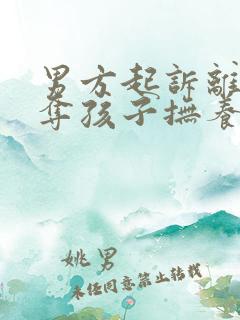 男方起訴離
奪孩子撫養
姚男
未任同意禁止转载